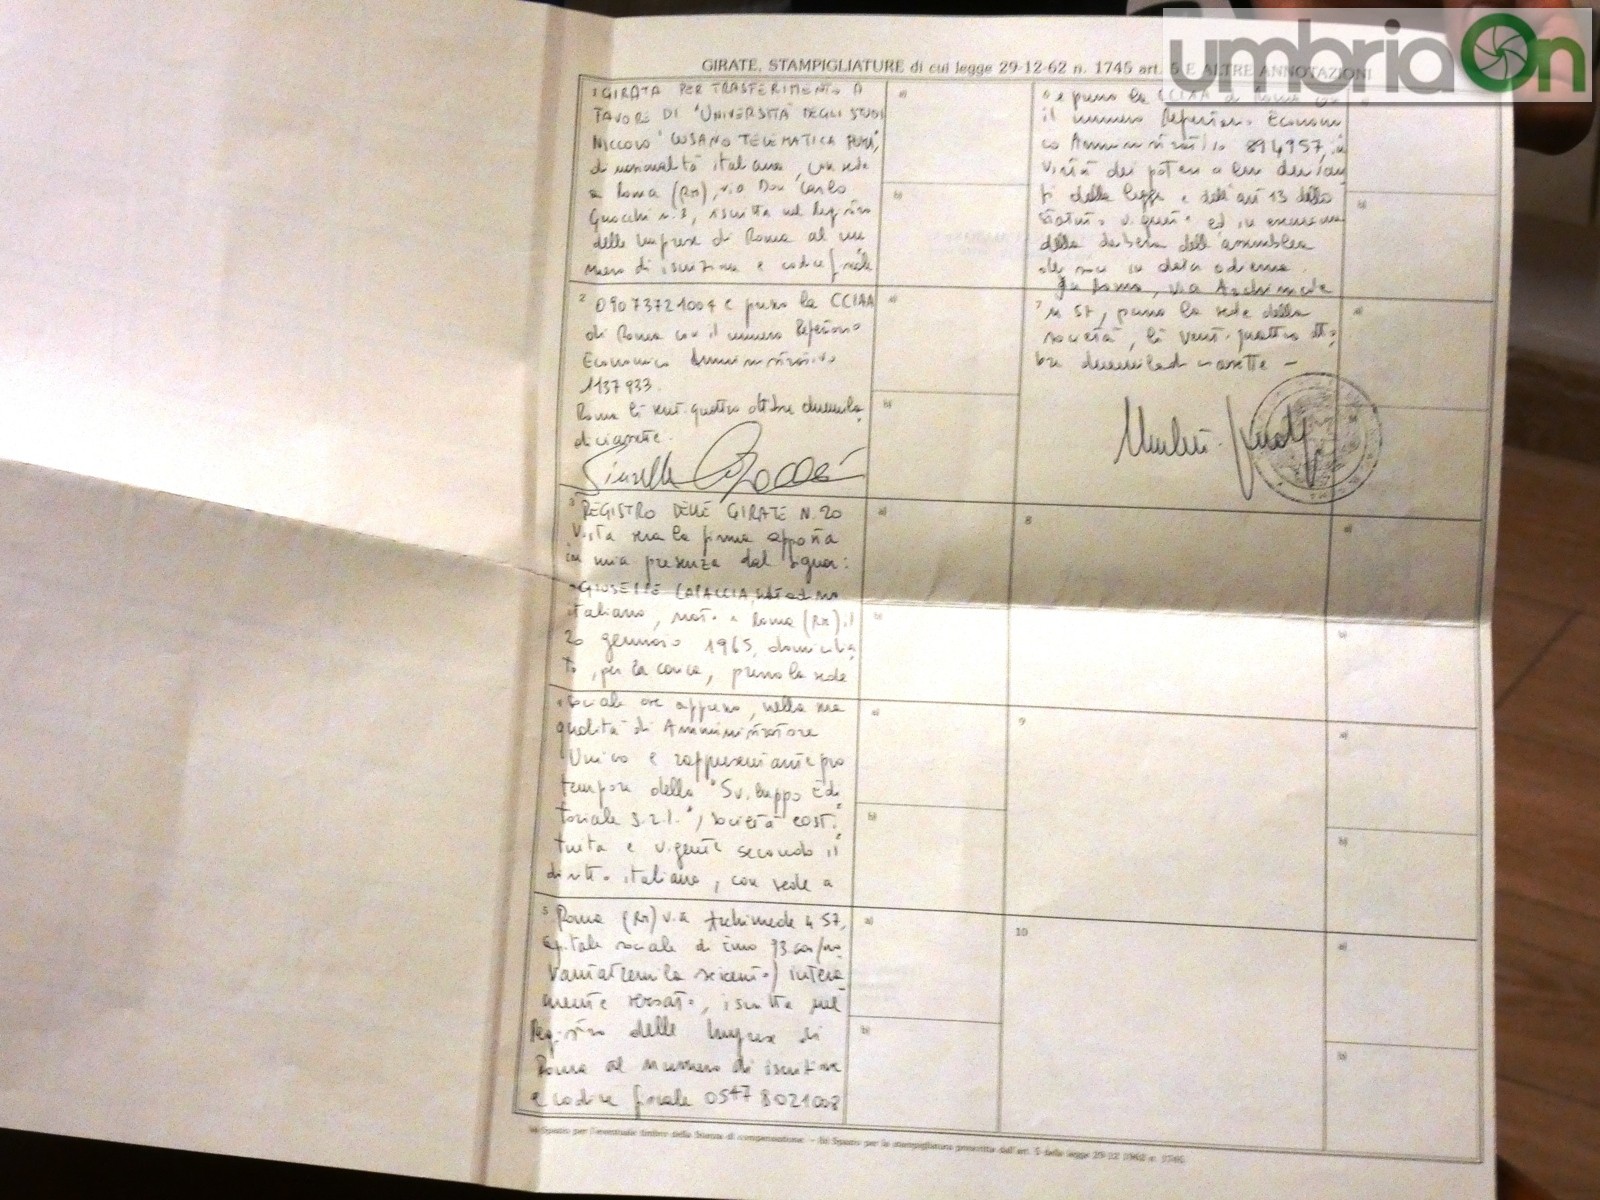 umbriaOn
GIRATE, STAMPIGLIATURE di cui legge 29-12-62 n. 1745 art. 5 E ALTRE ANNOTAZIONI
1 GIRATA PER TRASFERIMENTO A
FAVORE DI "UNIVERSITÀ DEGLI STUDI
NICCOLO' CUSANO TELEMATICA ROMA",
di nazionalità italiana, con sede
a Roma (RM), via Don Carlo
Gnocchi n. 3, iscritta nel Registro
delle Imprese di Roma al nu
mero di iscrizione e codice fiscale
2 09073721004 e presso la CCIAA
di Roma con il numero Repertorio
Economico Amministrativo
1137933.
Roma lì ventiquattro ottobre duemila
diciassette.
3 REGISTRO DELLE GIRATE N. 20
Vista vera la firma apposta
in mia presenza dal signor:
- GIUSEPPE CAPACCIA, cittadino
italiano, nato a Roma (RM) il
20 gennaio 1965, domicilia
to, per la carica, presso la sede
4 sociale ove appresso, nella sua
qualità di Amministratore
Unico e rappresentante pro
tempore della "Sviluppo Edi
toriale s.r.l.", società costi
tuita e vigente secondo il
diritto italiano, con sede a
5 Roma (RM) via Archimede n. 57,
capitale sociale di Euro 93.600 (no
vantatremilaseicento) intera
mente versato, iscritta nel
Registro delle Imprese di
Roma al numero di iscrizione
e codice fiscale 05478021008
6 e presso la CCIAA di Roma con
il numero Repertorio Economi
co Amministrativo 894957, in
virtù dei poteri a lui derivan
ti dalla legge e dall'art 13 dello
statuto vigente ed in esecuzione
della delibera dell'assemblea
dei soci in data odierna.
In Roma, via Archimede
7 n. 57, presso la sede della
società, lì ventiquattro otto
bre duemiladiciassette -
8
9
10
a)
b)
a)
b)
a)
b)
a)
b)
a)
b)
a)
b)
a)
b)
a)
b)
a)
b)
(a) Spazio per l'eventuale timbro della Stanza di compensazione. - (b) Spazio per la stampigliatura prescritta dall'art. 5 della legge 29-12 1962 n. 1745